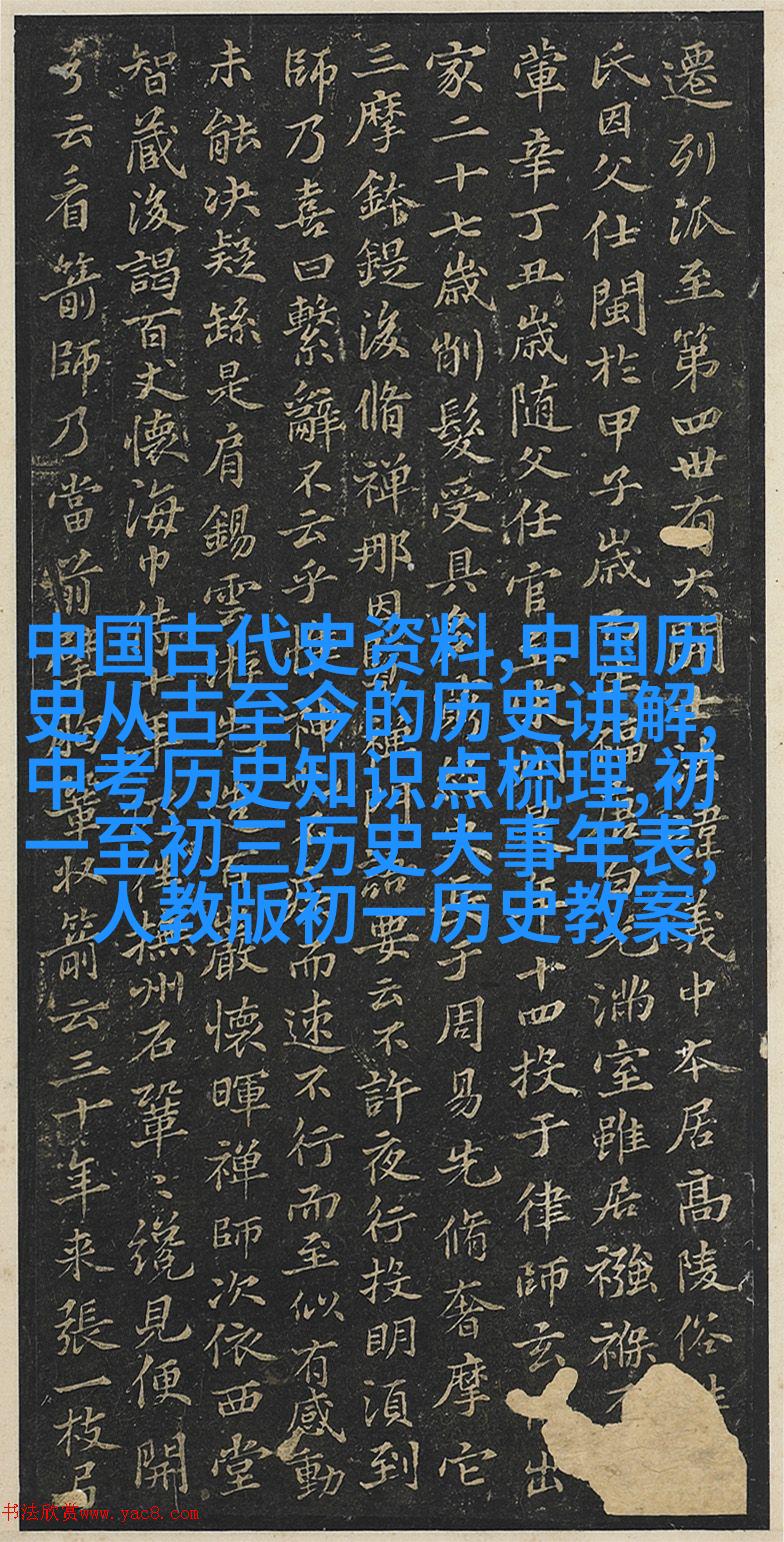 遷列派至第四世有大開義中本居高陵俗
氏因父仕閩於甲子歲光滿室雖居襁褓
葷辛丁丑歲随父任官十四投于律師玄出
家二十七歲削髮受具于周易先脩奢摩它
三摩鉢鍉後脩禅那因要云不許夜行投明湏到
師乃喜曰繫辭不云乎而速不行而至似有感動
未能决疑繇是肩錫雲嚴懷暉禅師次依西堂
智蔵後謁百丈懷海巾侍十年撫州石鞏〻纔見便開
弓云看箭師乃當前收箭云三十年來張一枝弓
中国古代史资料,中国历
史从古至今的历史讲解,
中考历史知识点梳理,初
一至初三历史大事年表,
人教版初一历史教案
书法欣赏www.yac8.com